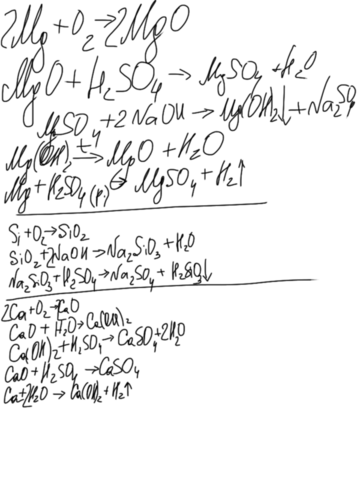 2Mg+O₂→2MgO
MgO+H₂SO₄→MgSO₄+H₂O
MgSO₄+2NaOH→Mg(OH)₂↓+Na₂SO₄
Mg(OH)₂ t→ MgO+H₂O
Mg+H₂SO₄(р)→MgSO₄+H₂↑
Si+O₂→SiO₂
SiO₂+2NaOH→Na₂SiO₃+H₂O
Na₂SiO₃+H₂SO₄→Na₂SO₄+H₂SiO₃↓
2Ca+O₂→CaO
CaO+H₂O→Ca(OH)₂
Ca(OH)₂+H₂SO₄→CaSO₄+2H₂O
CaO+H₂SO₄→CaSO₄
Ca+2H₂O→Ca(OH)₂+H₂↑